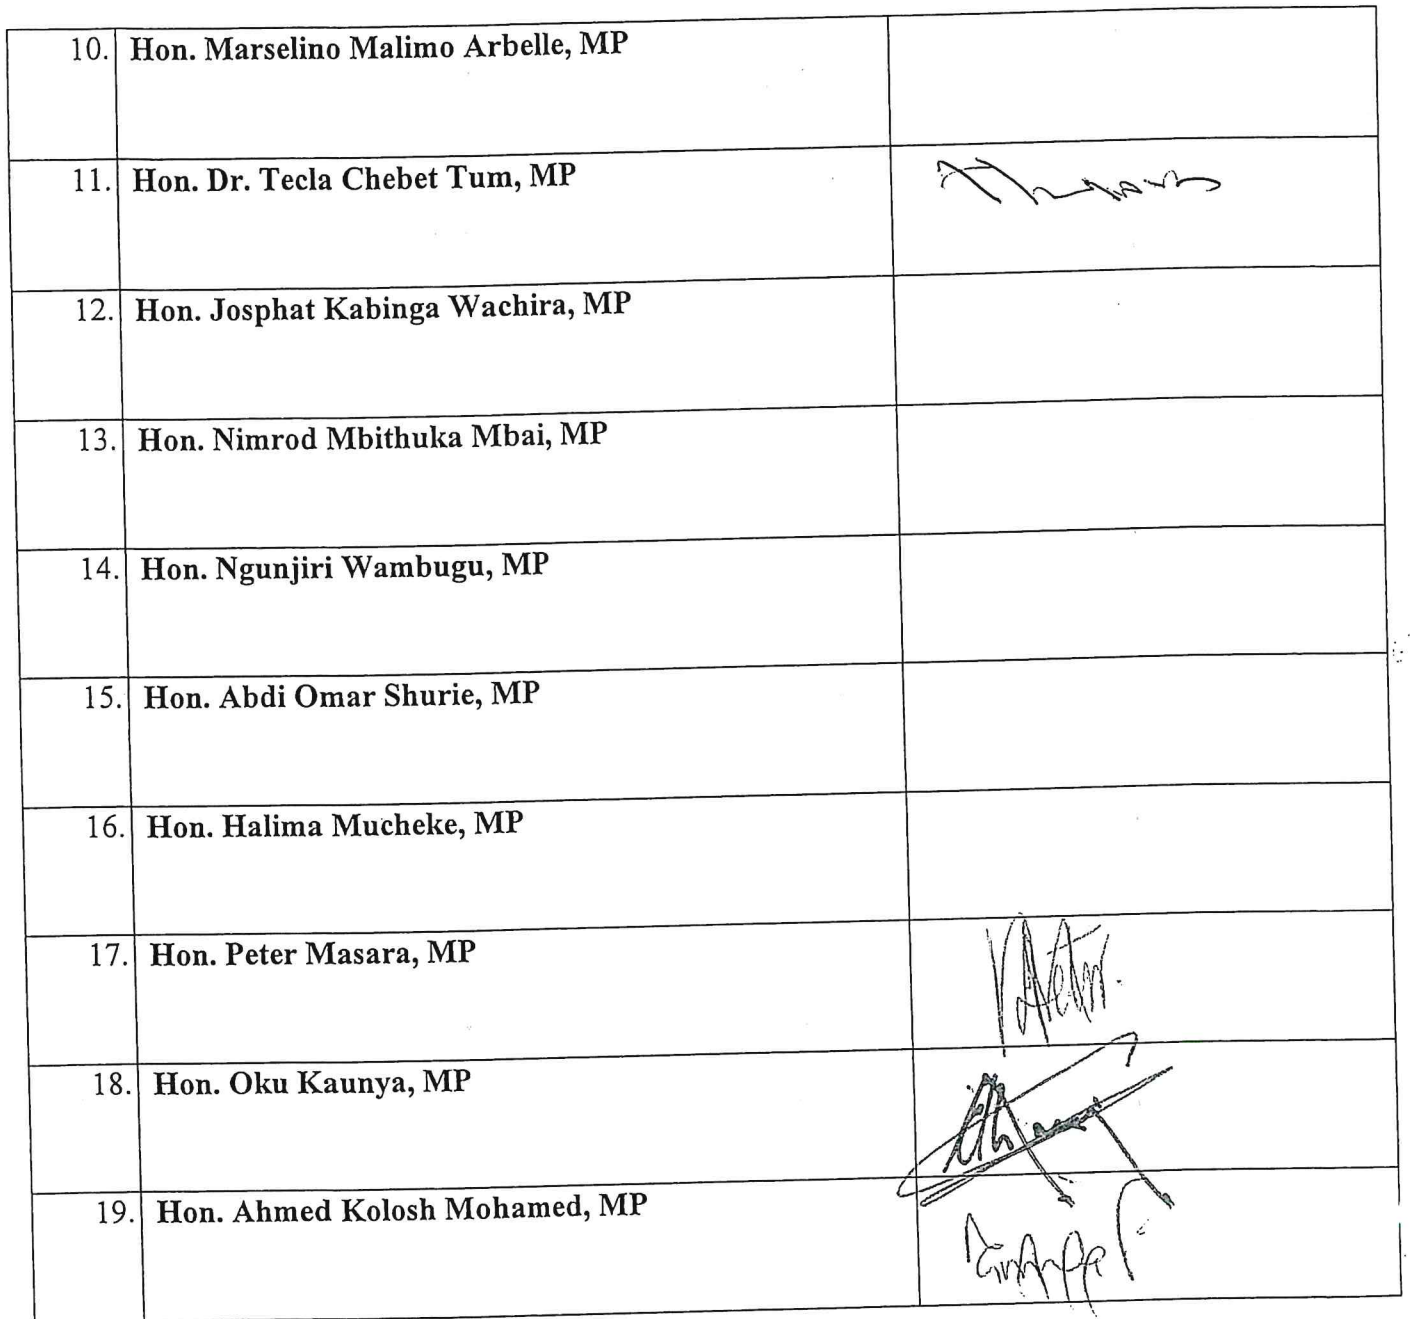 10. Hon. Marselino Malimo Arbelle, MP
11. Hon. Dr. Tecla Chebet Tum, MP
12. Hon. Josphat Kabinga Wachira, MP
13. Hon. Nimrod Mbithuka Mbai, MP
14. Hon. Ngunjiri Wambugu, MP
15. Hon. Abdi Omar Shurie, MP
16. Hon. Halima Mucheke, MP
17. Hon. Peter Masara, MP
18. Hon. Oku Kaunya, MP
19. Hon. Ahmed Kolosh Mohamed, MP